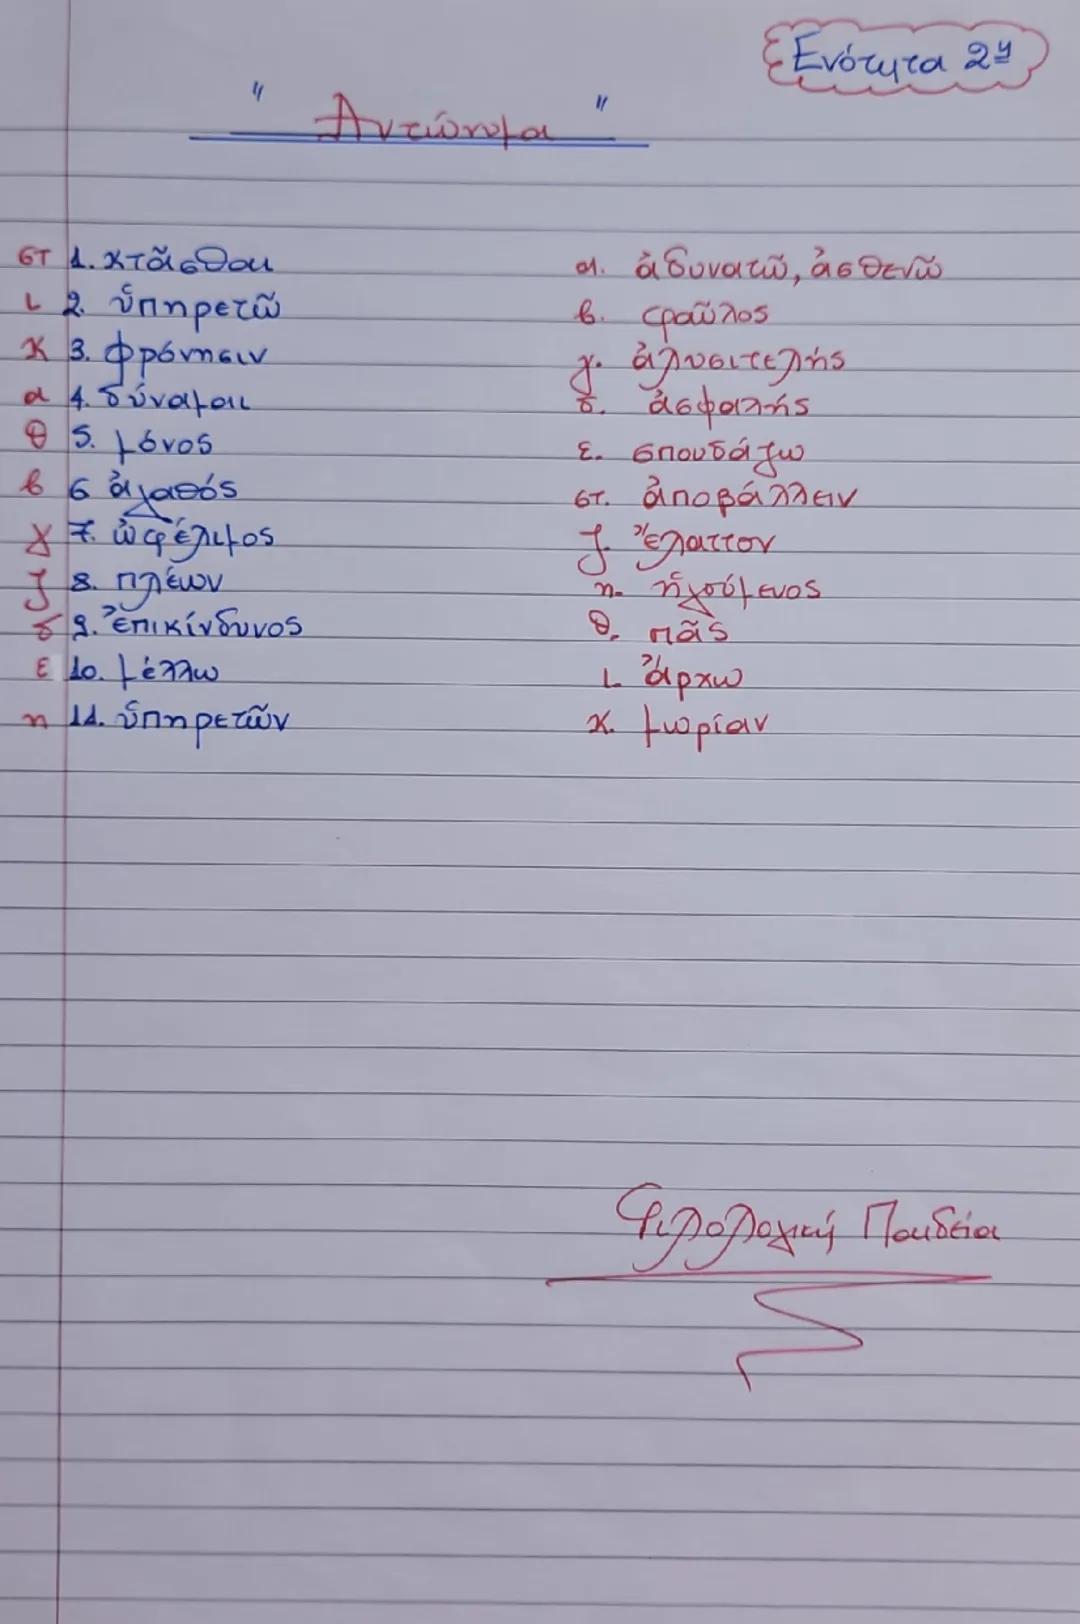 Ενότητα 2η
" Αντώνυμα "
στ 1. κτᾶσθαι α. ἀδυνατῶ, ἀσθενῶ
ι 2. ὑπηρετῶ β. φαῦλος
κ 3. φρόνησιν γ. ἀλυσιτελής
α 4. δύναμαι δ. ἀσφαλής
θ 5. μόνος ε. σπουδάζω
β 6 ἀγαθός στ. ἀποβάλλειν
γ 7. ὠφέλιμος ζ. ἔλαττον
ζ 8. πλέων η. ἡγούμενος
δ 9. ἐπικίνδυνος θ. πᾶς
ε 10. μέλλω ι. ἄρχω
η 11. ὑπηρετῶν κ. μωρίαν
Φιλολογική Παιδεία